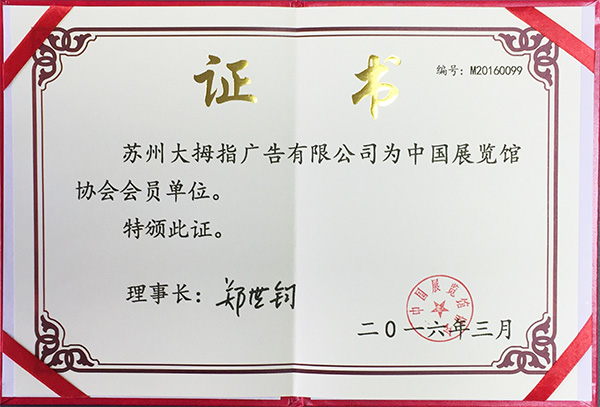 证 书
编号：M20160099
苏州大拇指广告有限公司为中国展览馆
协会会员单位。
特颁此证。
理事长：郑世钧
中国展览馆协会
二〇一六年三月